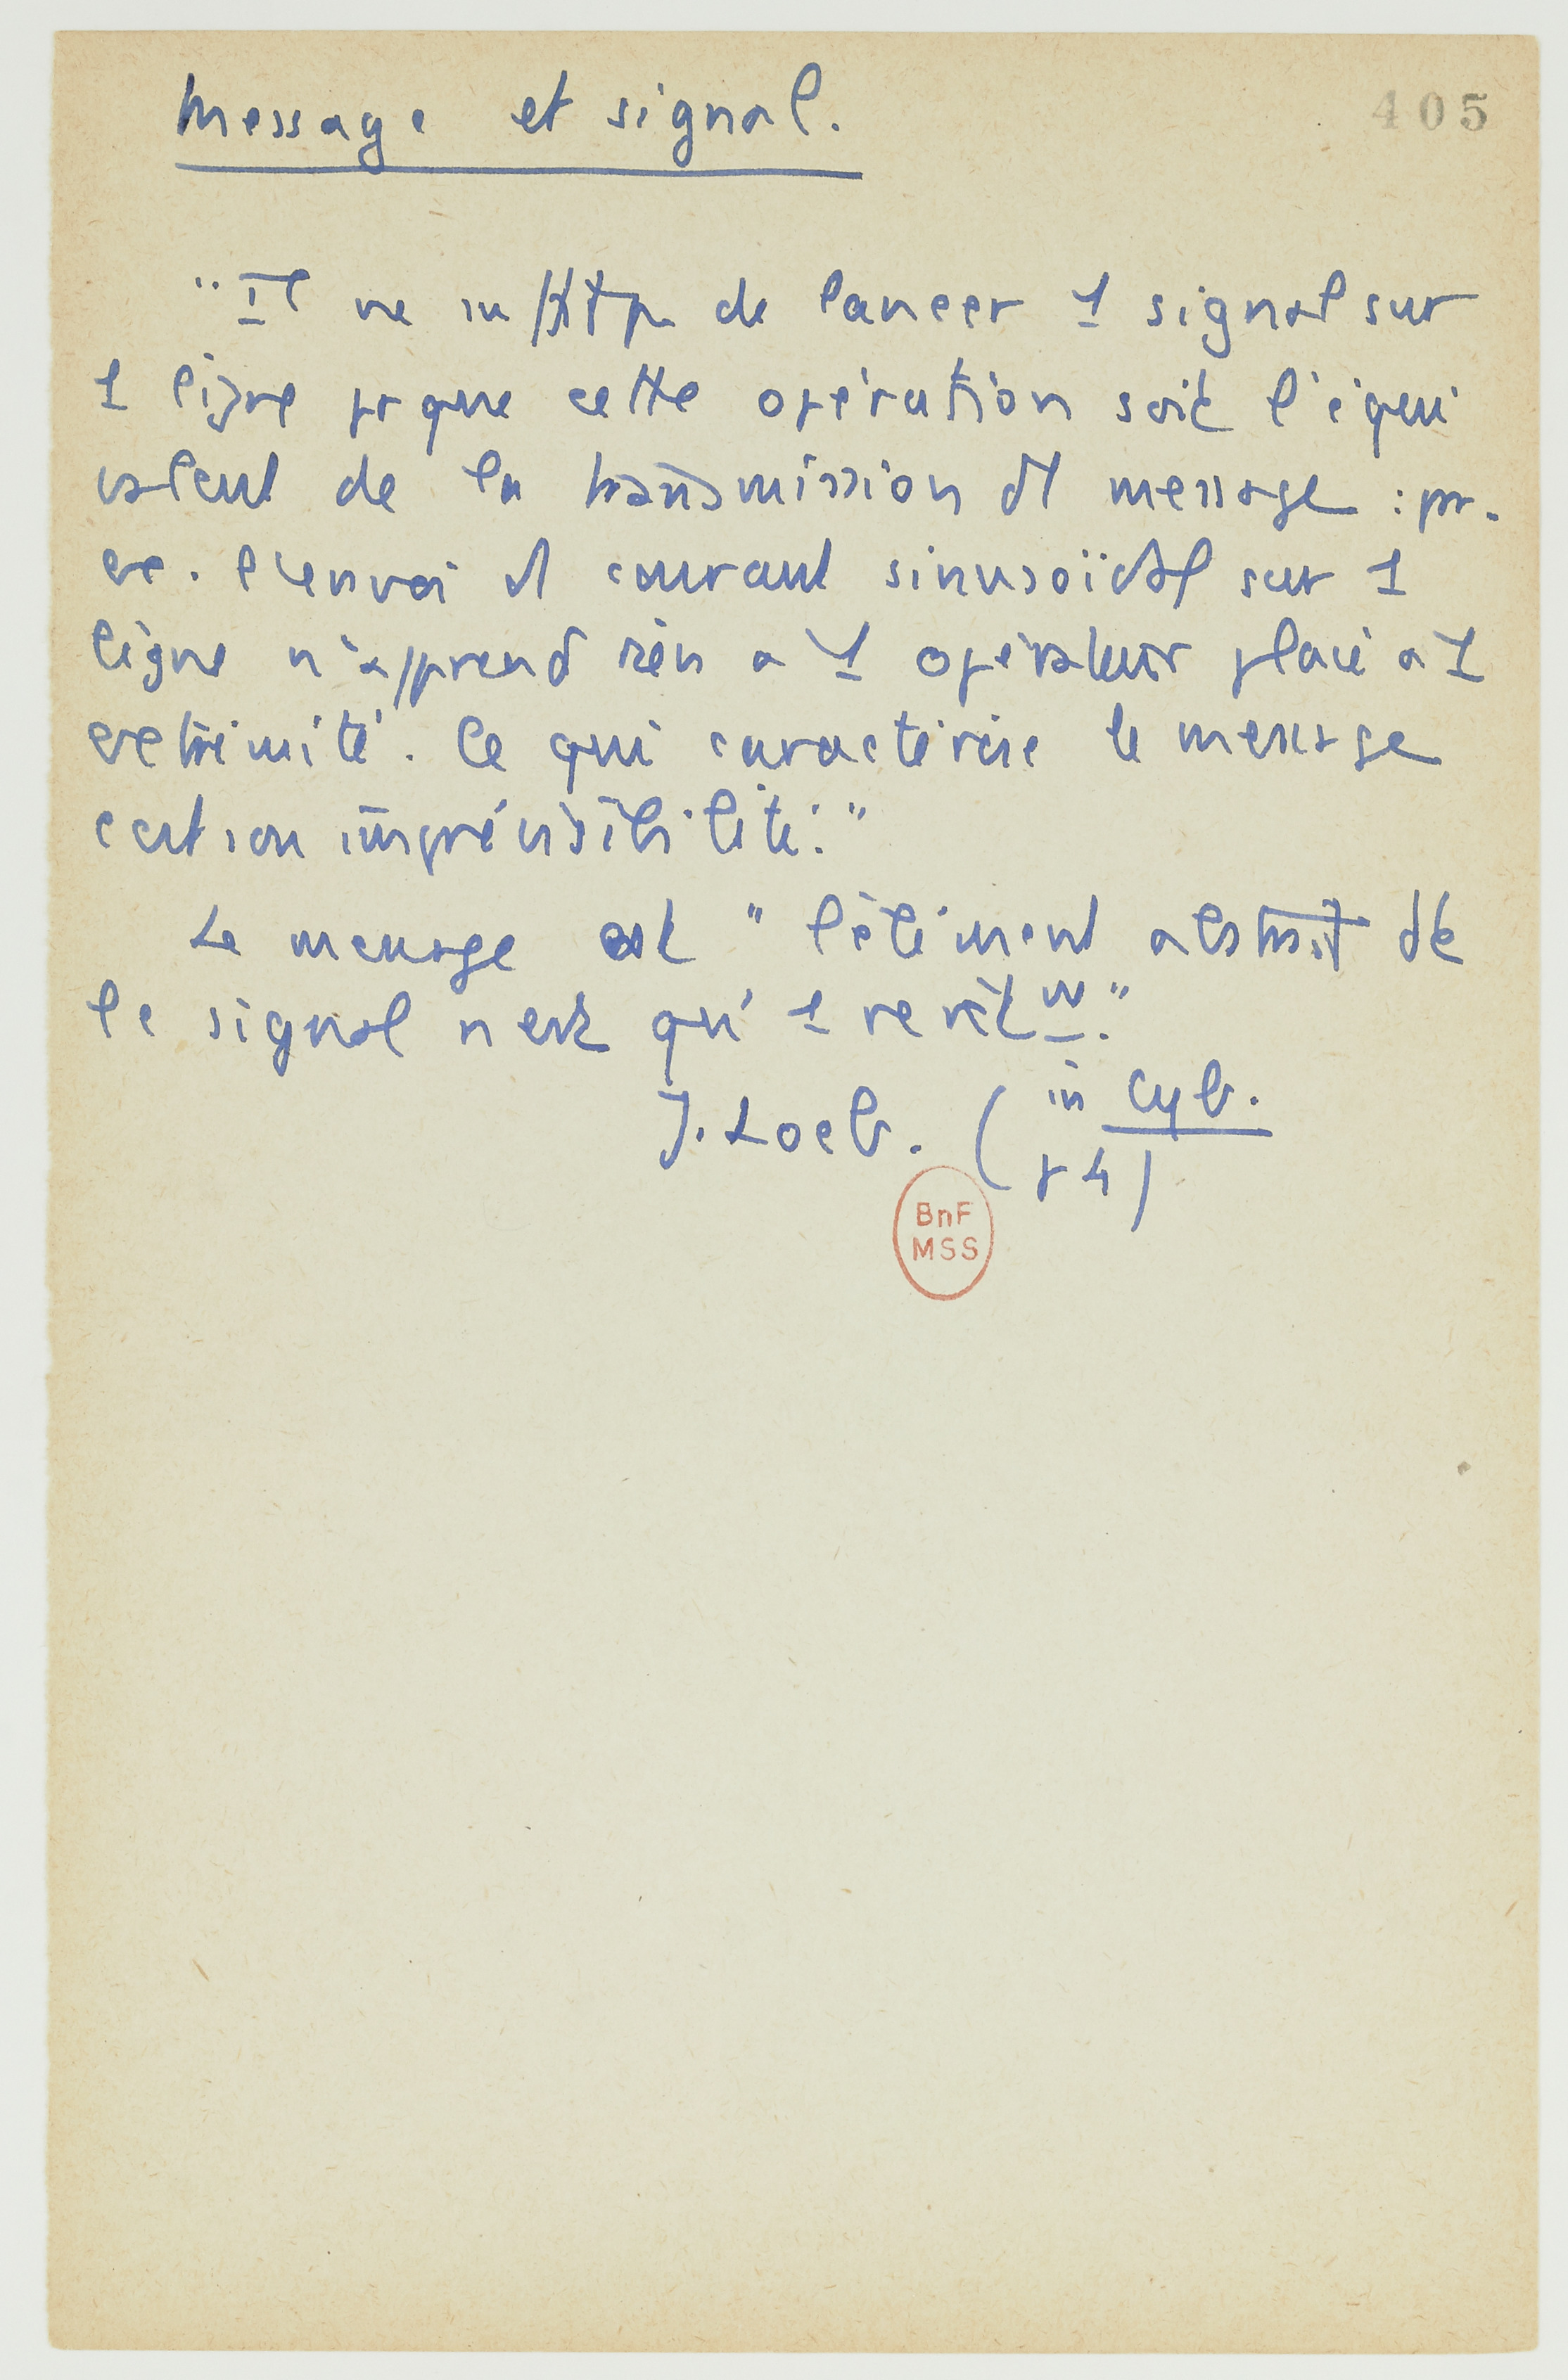 Message et signal.
405
"Il ne suffit pas de lancer 1 signal sur
1 ligne pr que cette opération soit l'équi
valent de la transmission d'1 message : par.
ex. l'envoi d'1 courant sinusoïdal sur 1
ligne n'apprend rien a 1 opérateur placé a 1
extrémité. Ce qui caractérise le message
c'est son imprévisibilité."
Le message est "l'élément abstrait dt
le signal n'est qu'1 revêtmt."
J. Loeb. (in Cyb.
p 4)
BnF
MSS